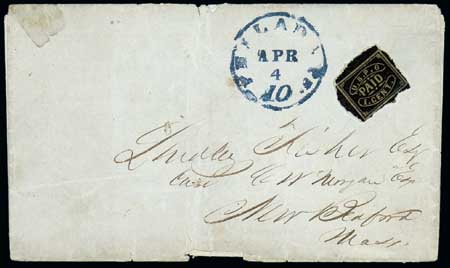 PHILADA. Pa.
APR
4
10
U.S.P.O
PAID
1 CENT
Dudley Fisher Esq
Care C W Morgan Esq
New Bedford
Mass.